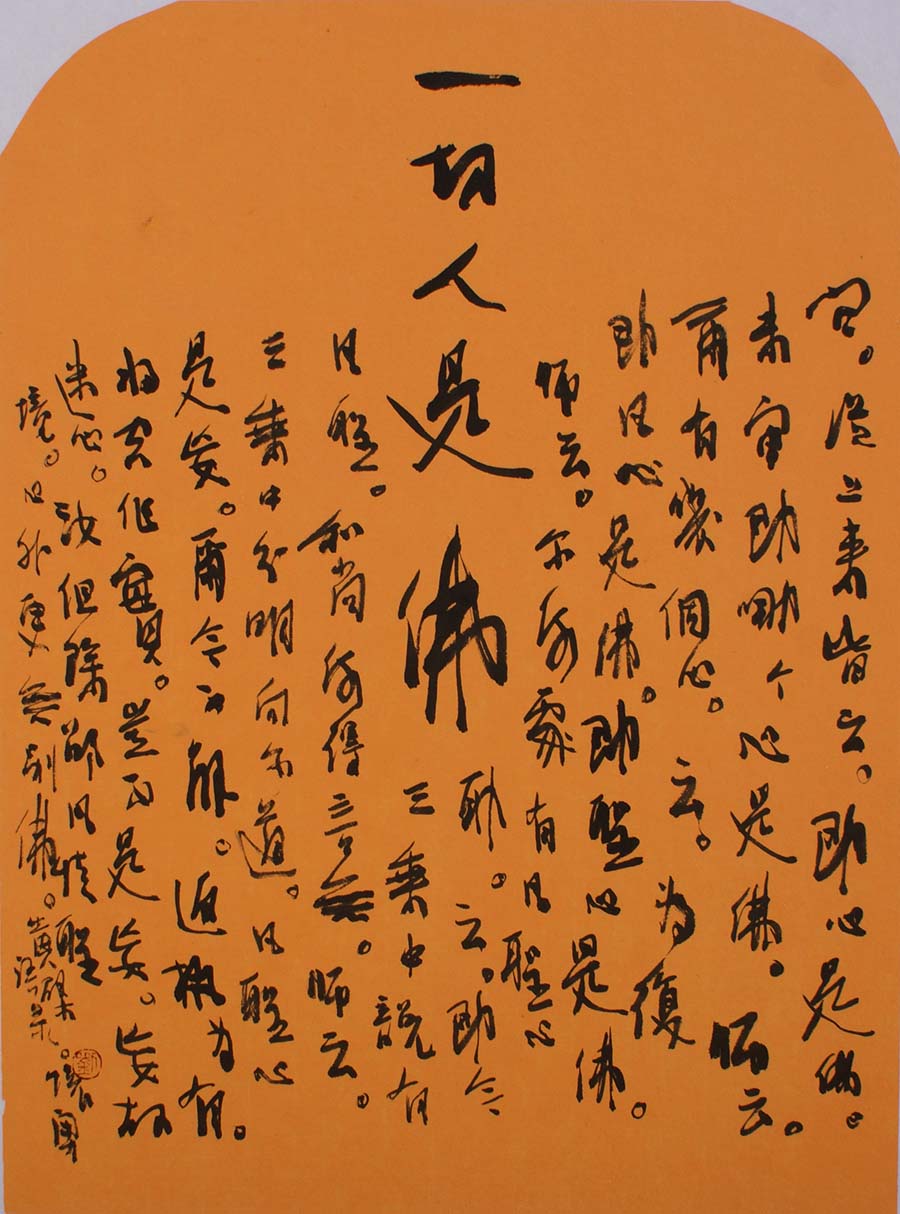 一切人是佛
问。從上来皆云。即心是佛。
未审即哪个心是佛。师云。
爾有幾個心。云。为復
即凡心是佛。即聖心是佛。
师云。尔何處有凡聖心
耶。云。即今
三乘中說有
凡聖。和尚何得言無。师云。
三乘中分明向尔道。凡聖心
是妄。爾今不解。返執为有。
将空作實見。豈不是妄。妄故
迷心。汝但除卻凡情聖
境。心外更無别佛。黄檗
語录。